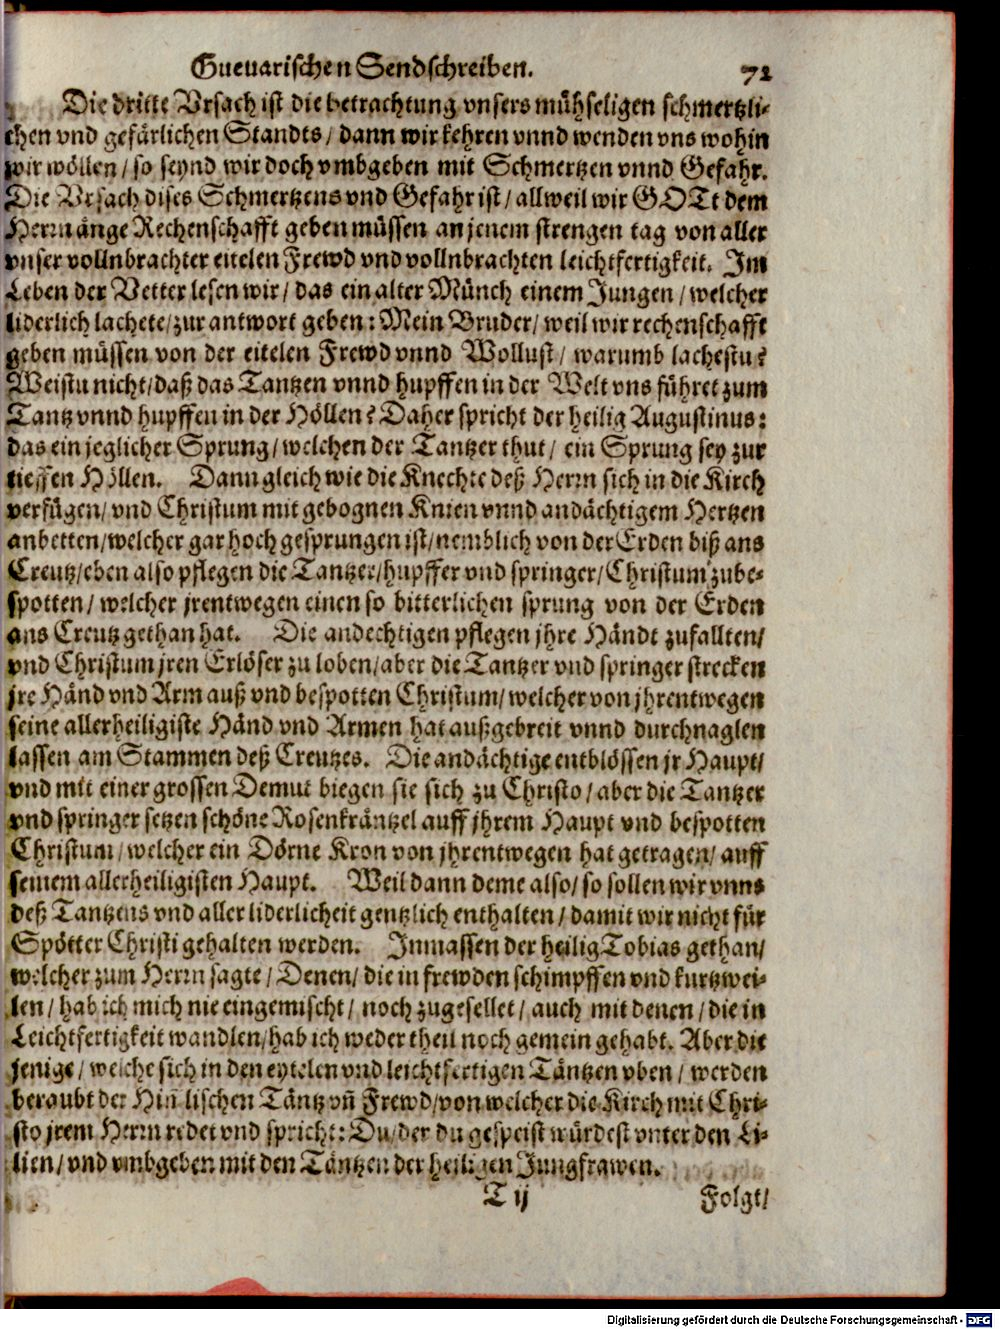 Guevarischen Sendschreiben. 72
Die dritte Vrsach ist die betrachtung vnsers mühseligen schmertzli-
chen vnd gefärlichen Standts/ dann wir kehren vnnd wenden vns wohin
wir wöllen/ so seynd wir doch vmbgeben mit Schmertzen vnnd Gefahr.
Die Vrsach dises Schmertzens vnd Gefahr ist/ allweil wir GOTt dem
Herrn änge Rechenschafft geben müssen an jenem strengen tag von aller
vnser vollnbrachter eitelen Frewd vnd vollnbrachten leichtfertigkeit. Im
Leben der Vetter lesen wir/ das ein alter Münch einem Jungen/ welcher
liderlich lachete/ zur antwort geben: Mein Bruder/ weil wir rechenschafft
geben müssen von der eitelen Frewd vnnd Wollust/ warumb lachestu?
Weistu nicht/ daß das Tantzen vnnd hupffen in der Welt vns führet zum
Tantz vnnd hupffen in der Höllen? Daher spricht der heilig Augustinus:
das ein jeglicher Sprung/ welchen der Tantzer thut/ ein Sprung sey zur
tieffen Höllen. Dann gleich wie die Knechte deß Herrn sich in die Kirch
verfügen/ vnd Christum mit gebognen Knien vnnd andächtigem Hertzen
anbetten/ welcher gar hoch gesprungen ist/ nemblich von der Erden biß ans
Creutz/ eben also pflegen die Tantzer/ hupffer vnd springer/ Christum zube-
spotten/ welcher jrentwegen einen so bitterlichen sprung von der Erden
ans Creutz gethan hat. Die andechtigen pflegen jhre Händt zufallten/
vnd Christum jren Erlöser zu loben/ aber die Tantzer vnd springer strecken
jre Händ vnd Arm auß vnd bespotten Christum/ welcher von jhrentwegen
seine allerheiligiste Händ vnd Armen hat außgebreit vnnd durchnaglen
lassen am Stammen deß Creutzes. Die andächtige entblössen jr Haupt/
vnd mit einer grossen Demut biegen sie sich zu Christo/ aber die Tantzer
vnd springer setzen schöne Rosenkräntzel auff jhrem Haupt vnd bespotten
Christum/ welcher ein Dörne Kron von jhrentwegen hat getragen/ auff
seinem allerheiligisten Haupt. Weil dann deme also/ so sollen wir vnns
deß Tantzens vnd aller liderlicheit gentzlich enthalten/ damit wir nicht für
Spötter Christi gehalten werden. Inmassen der heilig Tobias gethan/
welcher zum Herrn sagte/ Denen/ die in frewden schimpffen vnd kurtzwei-
len/ hab ich mich nie eingemischt/ noch zugesellet/ auch mit denen/ die in
Leichtfertigkeit wandlen/ hab ich weder theil noch gemein gehabt. Aber die
jenige/ welche sich in den eytelen vnd leichtfertigen Täntzen vben/ werden
beraubt der Him̃lischen Täntz vñ Frewd/ von welcher die Kirch mit Chri-
sto jrem Herrn redet vnd spricht: Du/ der du gespeist würdest vnter den Li-
lien/ vnd vmbgeben mit den Täntzen der heiligen Jungfrawen.
T ij Folgt/
Digitalisierung gefördert durch die Deutsche Forschungsgemeinschaft - DFG